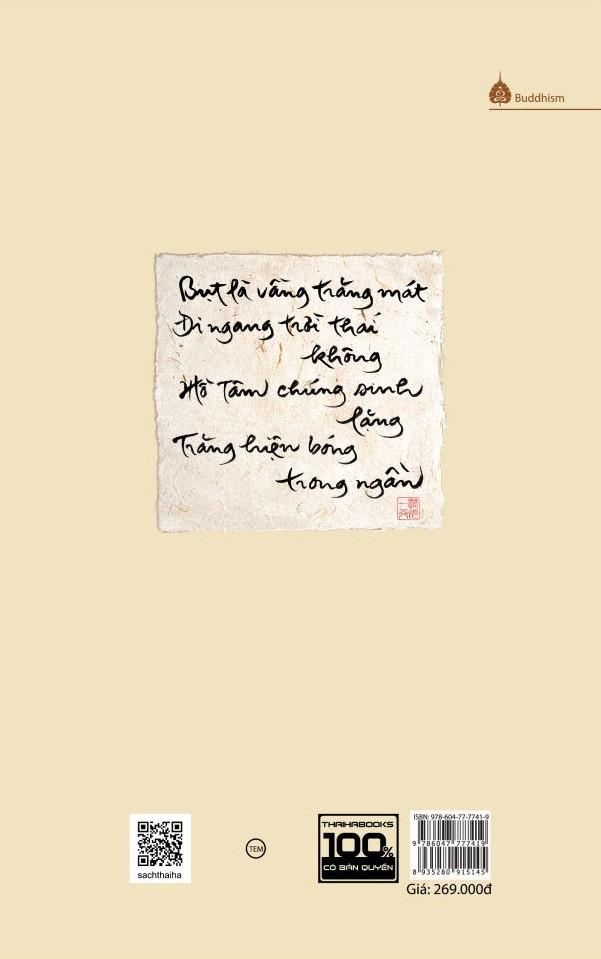 Buddhism
Bụt là vầng trăng mát
Đi ngang trời thái
không
Hồ Tâm chúng sinh
lặng
Trăng hiện bóng
trong ngần
ISBN: 978-604-77-7741-9
THAIHABOOKS
100%
CÓ BẢN QUYỀN
TEM
9 786047 777419
8 935280 915145
sachthaiha
Giá: 269.000đ